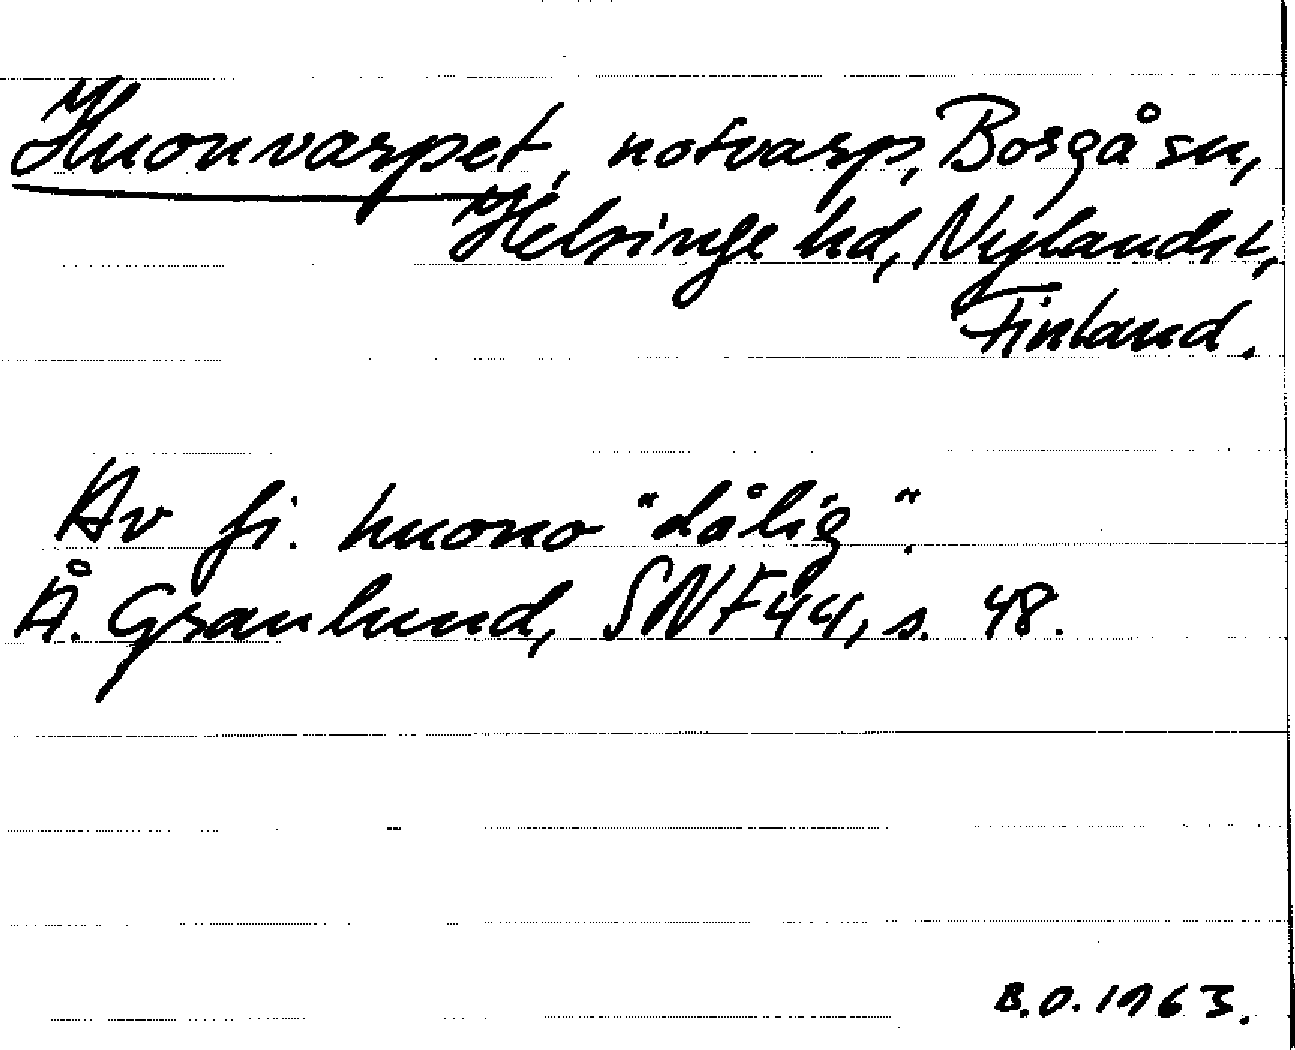 Huonvarpet, notvarp, Borgå sn,
Helsinge hd, Nylandst,
Finland.
Av fi. huono "dålig".
Å. Granlund, SNF 44, s. 48.
B.O. 1963.